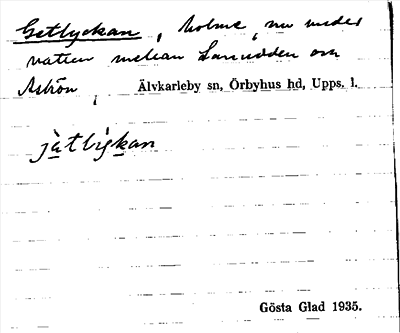 Getlyckan, holme, nu under
vatten mellan Sanudden och
Askön, Älvkarleby sn, Örbyhus hd, Upps. l.
jàtlỳkan
Gösta Glad 1935.